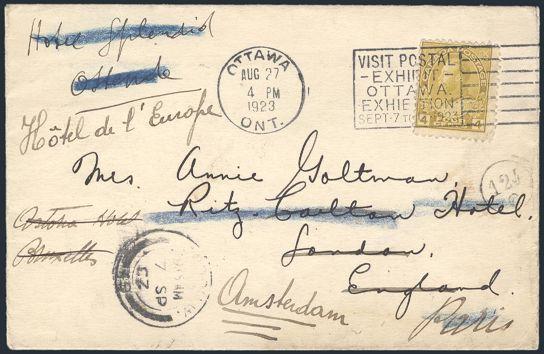 Hotel Splendid
Ostende
Hôtel de l'Europe
OTTAWA
AUG 27
4 PM
1923
ONT.
VISIT POSTAL
-EXHIBIT-
OTTAWA
EXHIBITION
SEPT-7 TO 1923
4 4
Mrs. Annie Goltman,
Ritz-Carlton Hotel.
London.
England.
Astoria Hotel
Bruxelles
AM
7 SP
23
Amsterdam
Paris